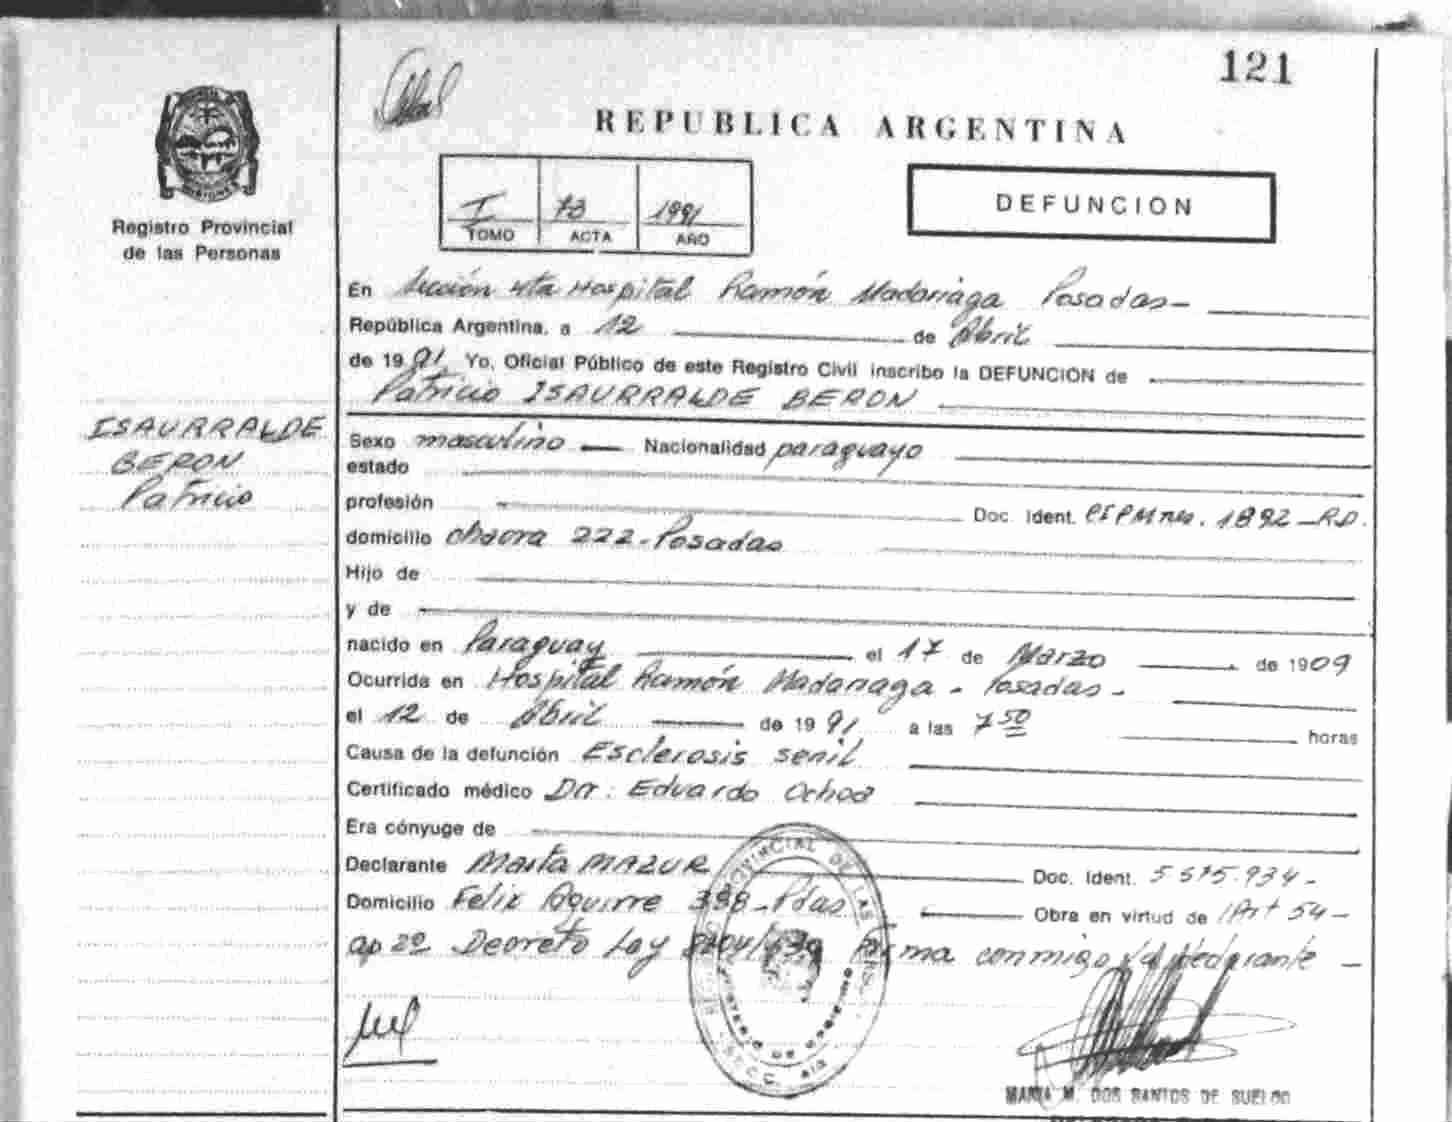 121
REPUBLICA ARGENTINA
MISIONES
Registro Provincial
de las Personas
I 78 1991
TOMO ACTA AÑO
DEFUNCION
En Sección 4ta Hospital Ramón Madariaga Posadas-
República Argentina, a 12 de Abril
de 1991 Yo, Oficial Público de este Registro Civil inscribo la DEFUNCION de
Patricio ISAURRALDE BERON
ISAURRALDE
BERON
Patricio
Sexo masculino Nacionalidad paraguayo
estado
profesión Doc. Ident. 1892-R.D.
domicilio chacra 222-Posadas
Hijo de
y de
nacido en Paraguay el 17 de Marzo de 1909
Ocurrida en Hospital Ramón Madariaga - Posadas-
el 12 de Abril de 1991 a las 7 50 horas
Causa de la defunción Esclerosis senil
Certificado médico Dr. Eduardo Ochoa
Era cónyuge de
Declarante Marta MAZUR Doc. Ident. 5.515.934-
Domicilio Felix Aguirre 398-Pdas Obra en virtud de Art 54-
ap 2º Decreto Ley Firma conmigo
MARIA M. DOS SANTOS DE SUELDO